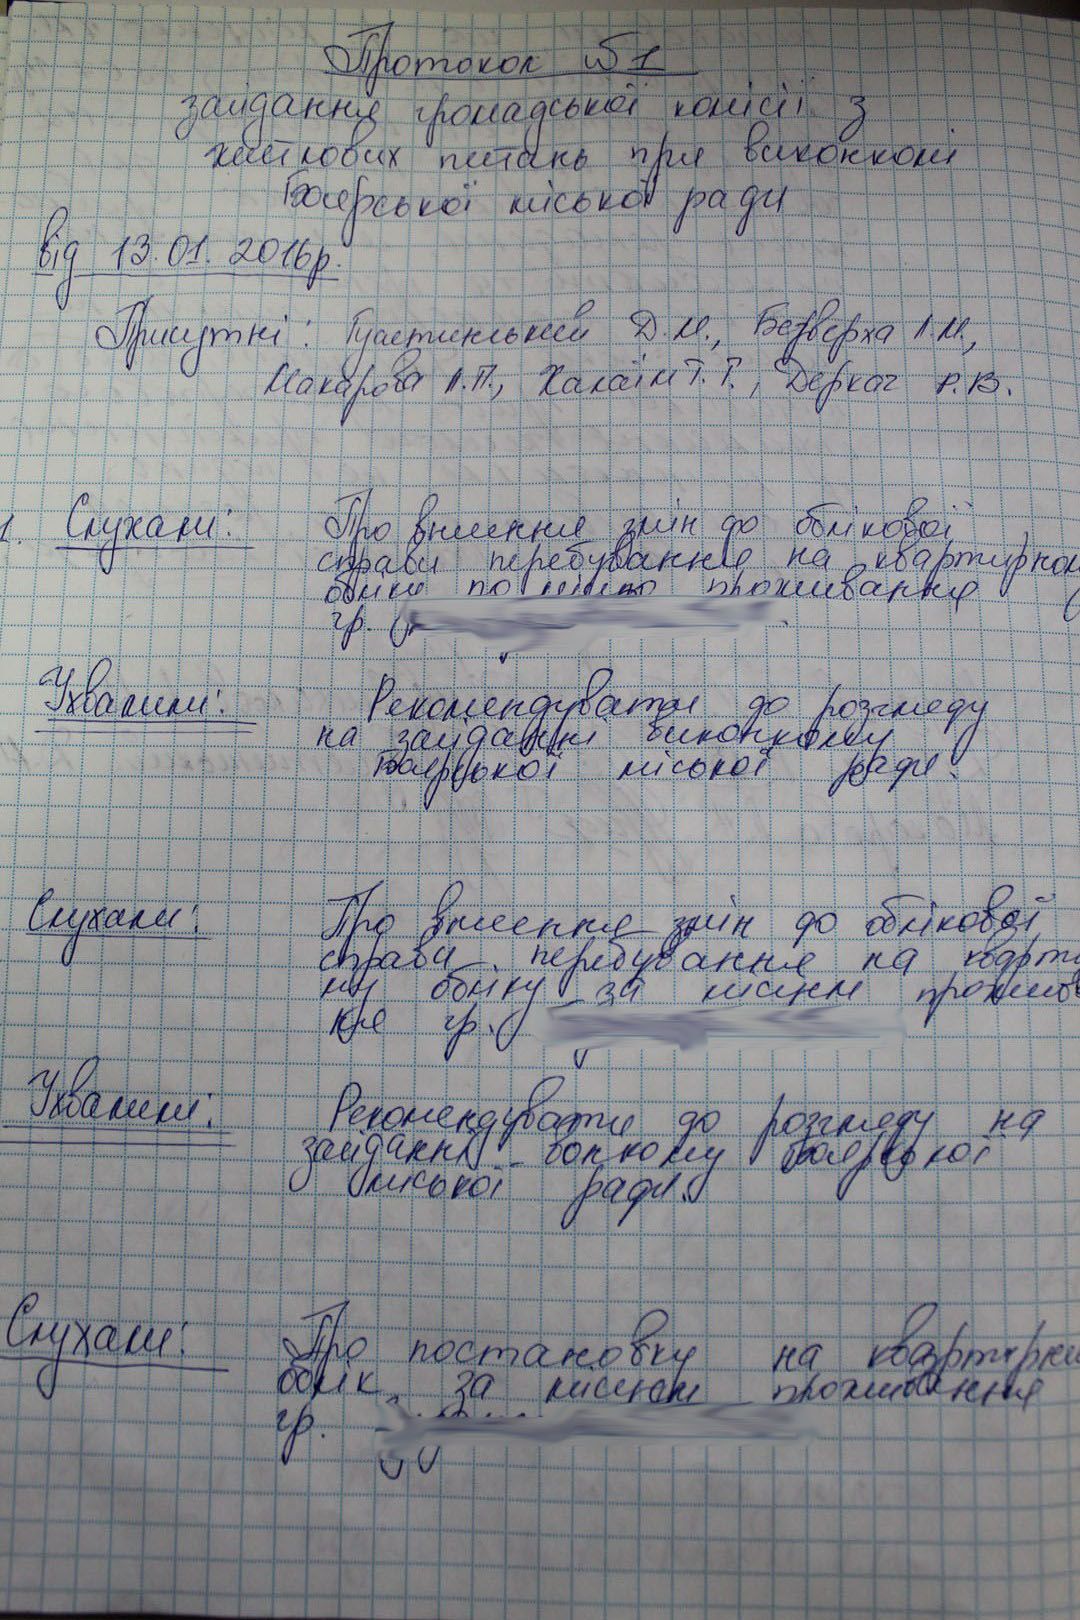 Протокол №1
засідання громадської комісії з
житлових питань при виконкомі
Боярської міської ради
від 13.01.2016р.
Присутні: Густинський Д.М., Безверха Л.М.,
Макарова Л.П., Халаїм Т.Г., Деркач Р.В.
1. Слухали: Про внесення змін до облікової
справи перебування на квартирном
обліку по місцю проживання
гр.
Ухвалили: Рекомендувати до розгляду
на засіданні виконкому
Боярської міської ради.
Слухали: Про внесення змін до облікової
справи перебування на кварти
му обліку за місцем прожив
ня гр.
Ухвалили: Рекомендувати до розгляду на
засіданні Боярської
міської ради.
Слухали: Про постановку на квартирни
облік за місцем проживання
гр.